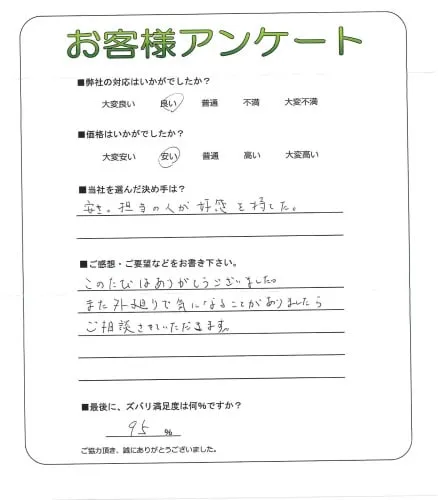 お客様アンケート
■弊社の対応はいかがでしたか?
大変良い 良い 普通 不満 大変不満
■価格はいかがでしたか?
大変安い 安い 普通 高い 大変高い
■当社を選んだ決め手は?
安さ。担当の人が好感を持てた。
■ご感想・ご要望などをお書き下さい。
このたびはありがとうございました。
また外廻りで気になることがありましたら
ご相談させていただきます。
■最後に、ズバリ満足度は何%ですか?
95 %
ご協力頂き、誠にありがとうございました。